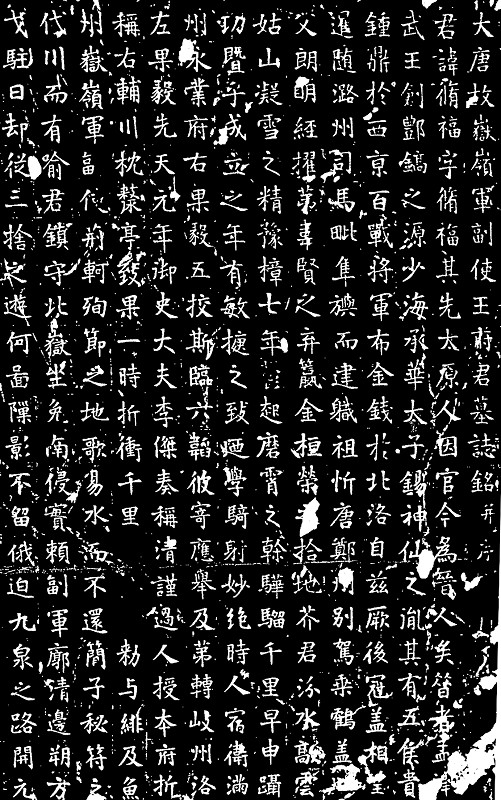 大唐故嶽嶺軍副使王府君墓誌銘并序
君諱脩福字脩福其先太原人因官今為晉人矣昔者孟
武王剑酆鎬之源少海承華太子錫神仙之胤其有五侯貴
鍾鼎於西京百戰將軍布金錢於北洛自茲厥後冠蓋相
暹隨潞州司馬毗隼襜而建職祖忻唐鄭州別駕乘鶴蓋
父朗明經擢第辜賢之弃籯金桓榮之拾地芥君汾水敲雲
姑山凝雪之精豫樟七年起磨霄之幹驊騮千里早申躡
功暨乎成立之年有敏捷之致迺學騎射妙絶時人宿衛滿
州永業府右果毅五挍斯臨六韜彼寄應舉及第轉岐州洛
左果毅先天元年御史大夫李傑奏稱清謹過人授本府折
稱右輔川枕藜亭發果一時折衝千里　勑与緋及魚
州嶽嶺軍畐使荊軻殉節之地歌易水而不還簡子秘符之
代川而有喻君鎮守此嶽坐免南侵賓賴副軍廓清邊朔方
戈駐日却從三捨之遊何啚隟影不留俄迫九泉之路開元